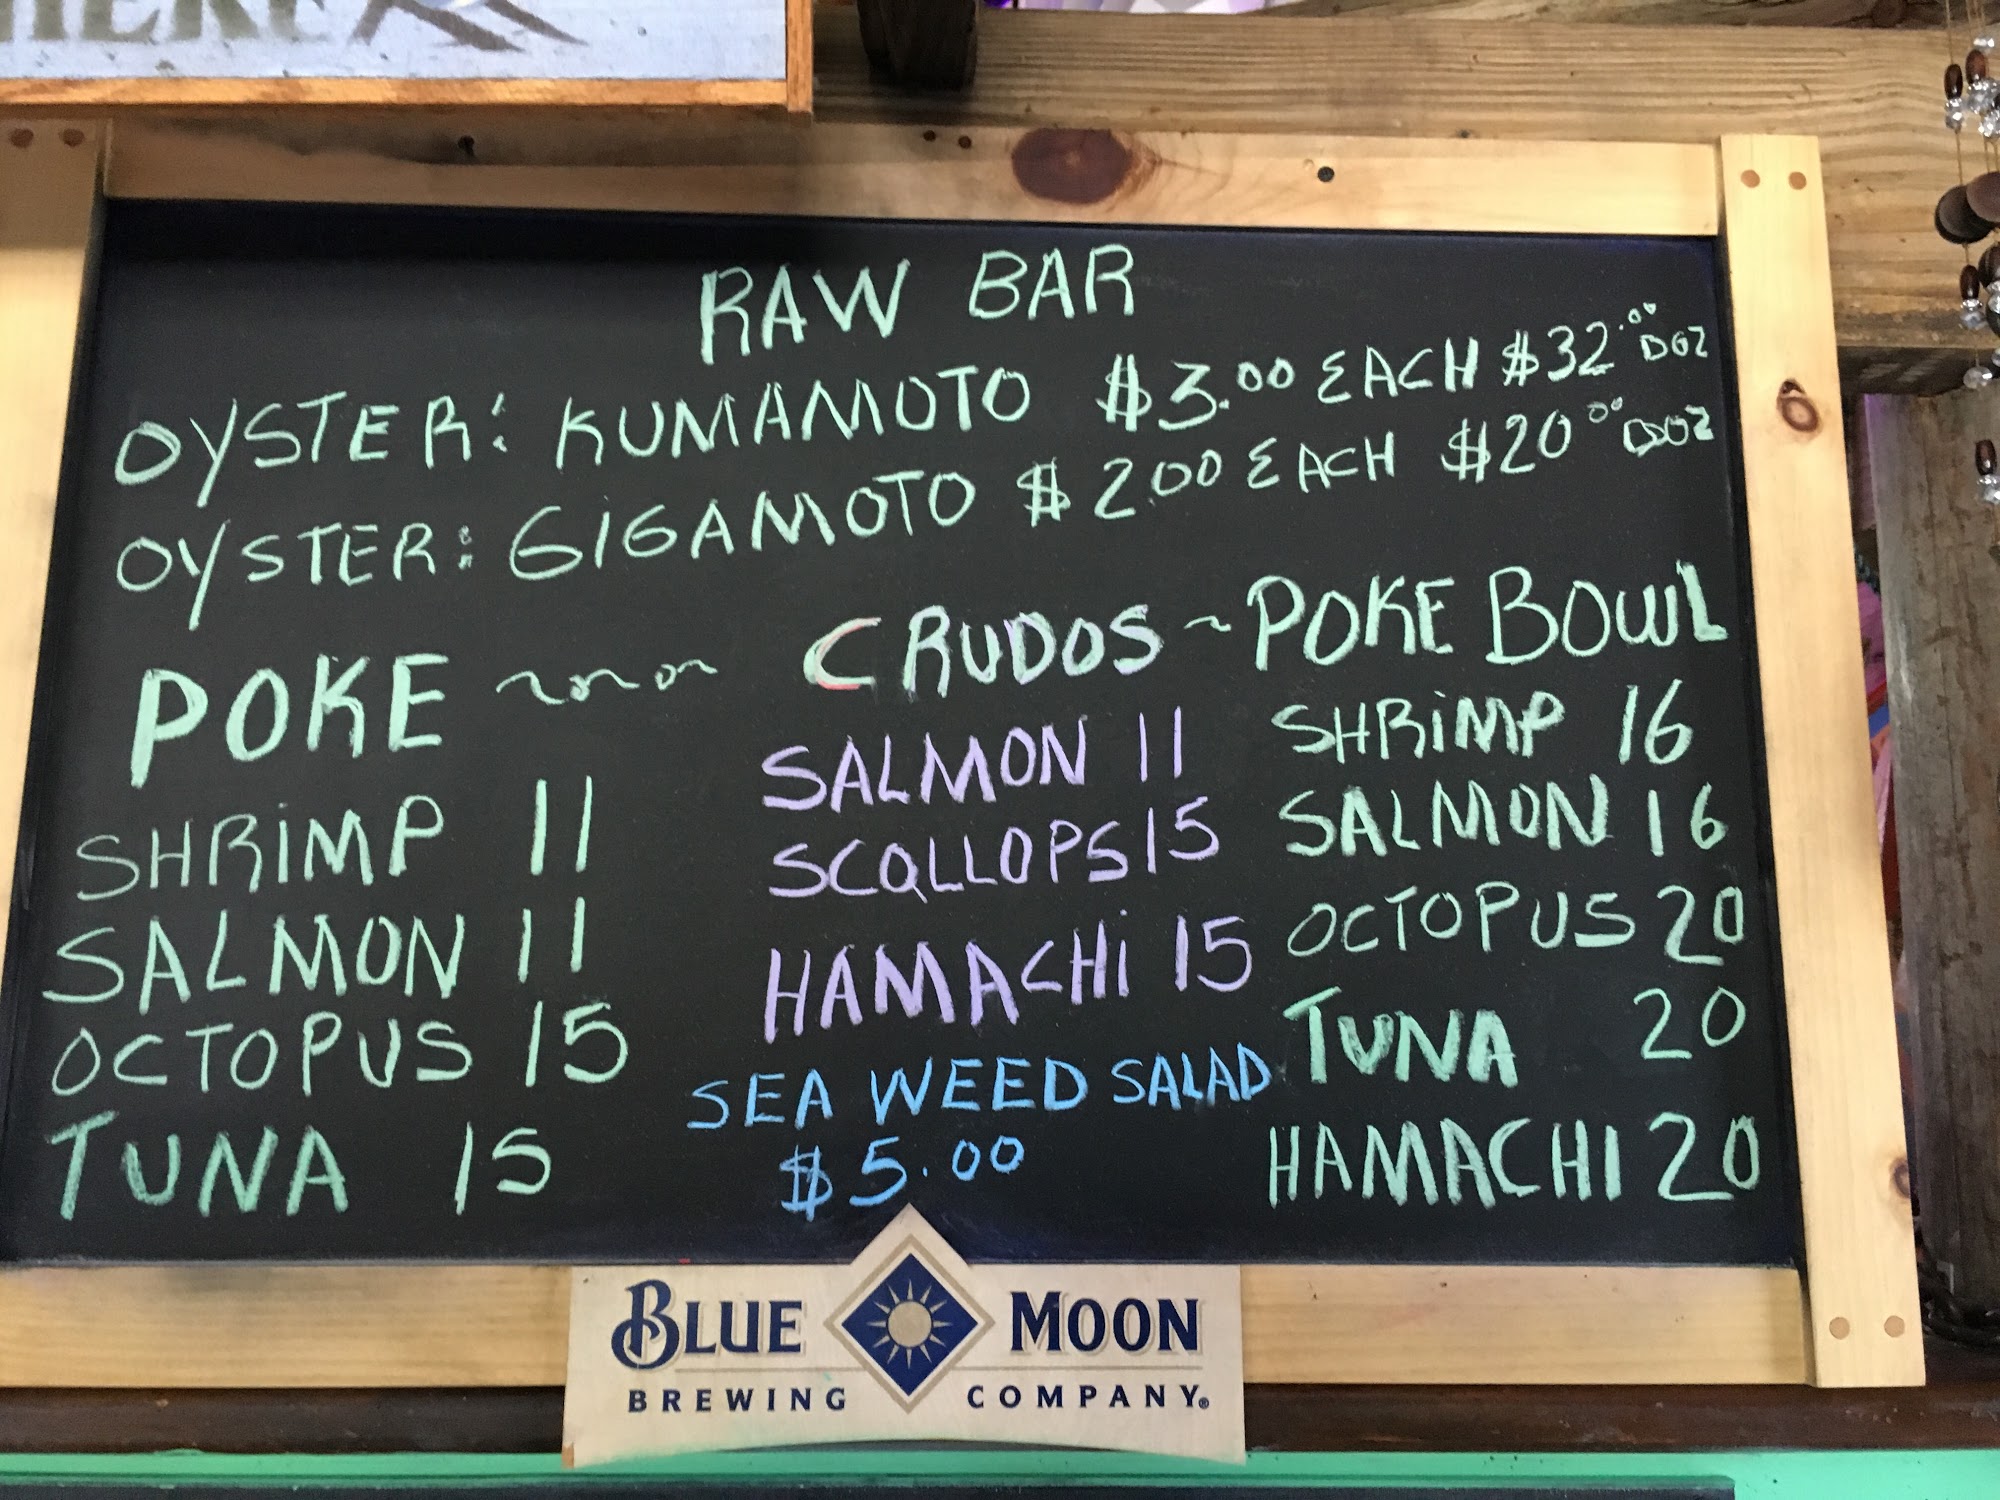 RAW BAR
OYSTER: KUMAMOTO $3.00 EACH $32.00 DOZ
OYSTER: GIGAMOTO $2.00 EACH $20.00 DOZ
POKE ~~~~
SHRiMP 11
SALMON 11
OCTOPUS 15
TUNA 15
CRUDOS ~
SALMON 11
SCALLOPS 15
HAMACHi 15
SEA WEED SALAD
$5.00
POKE BOWL
SHRiMP 16
SALMON 16
OCTOPUS 20
TUNA 20
HAMACHI 20
BLUE MOON
BREWING COMPANY®